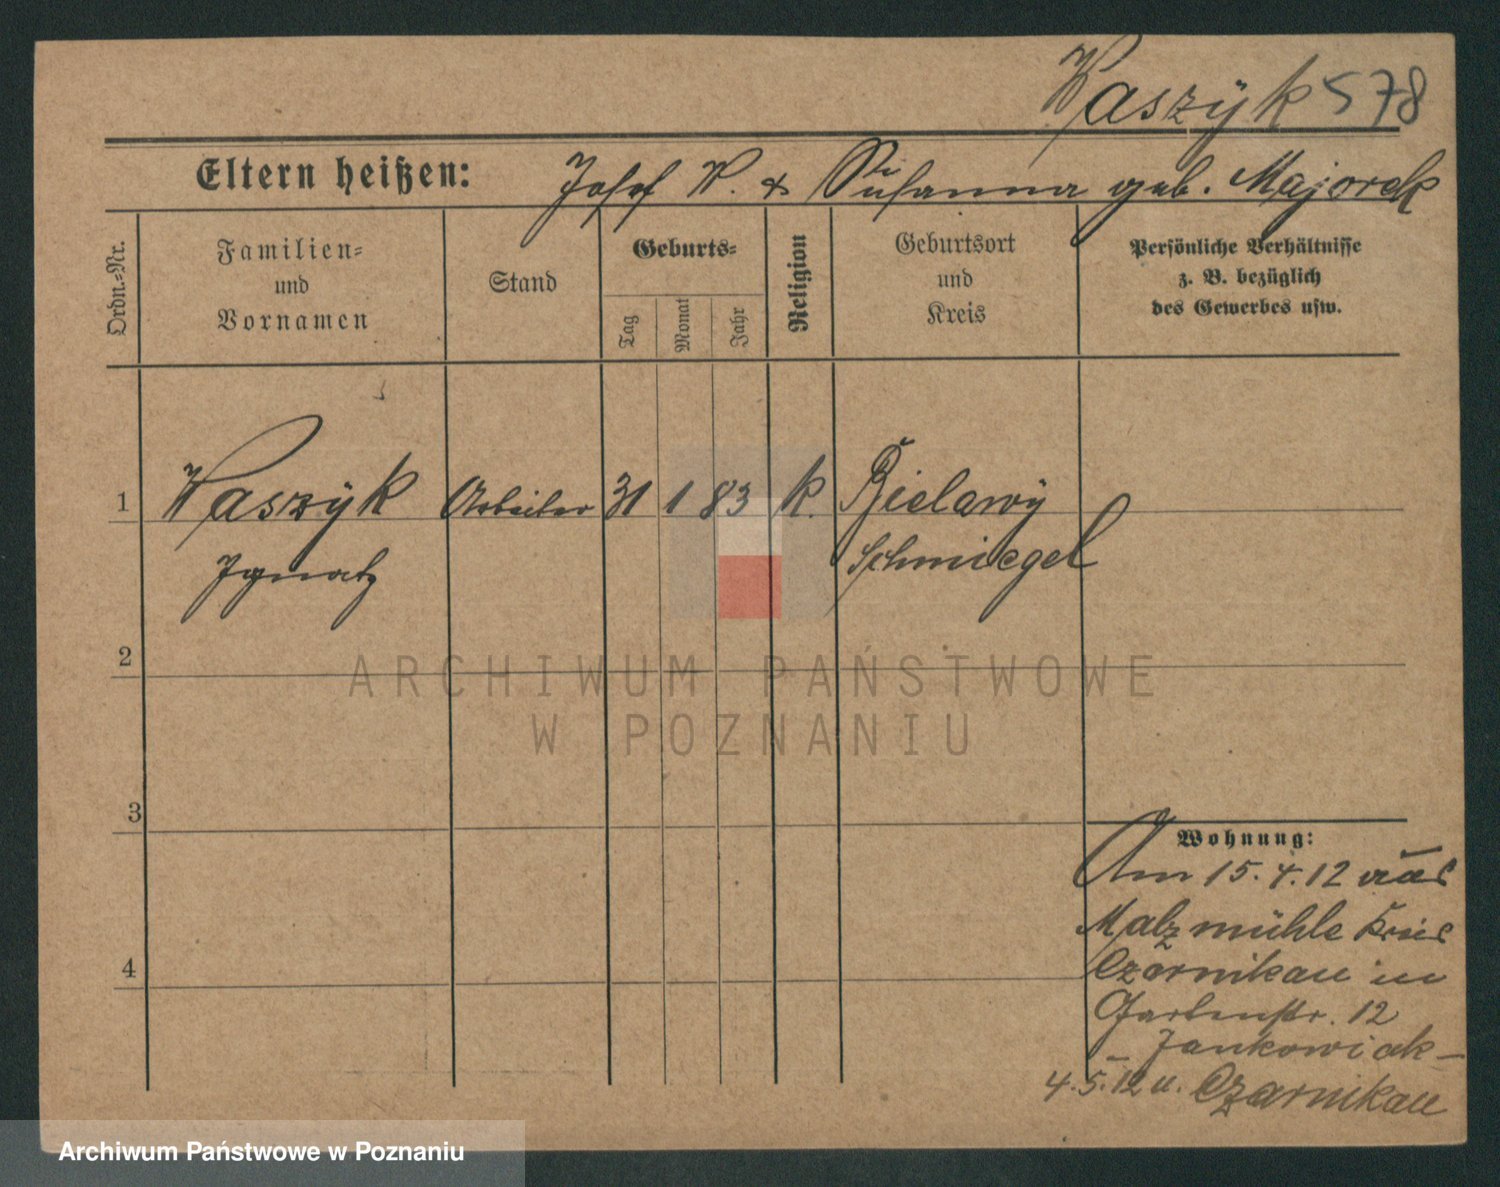 Waszÿk 578
Eltern heißen: Josef W. & Susanna geb. Majorek
Ordn.-Nr.
Familien- und Vornamen
Stand
Geburts-
Tag
Monat
Jahr
Religion
Geburtsort und Kreis
Persönliche Verhältnisse
z. B. bezüglich
des Gewerbes usw.
1 Waszÿk Arbeiter 31 1 83 k. Bielawÿ
Ignatz Schmiegel
2
ARCHIWUM PAŃSTWOWE
W POZNANIU
3
Wohnung:
Am 15.4.12 aus
Malzmühle Kreis
4
Czarnikau in
Gartenstr. 12
Jankowiak
4.5.12 n. Czarnikau
Archiwum Państwowe w Poznaniu